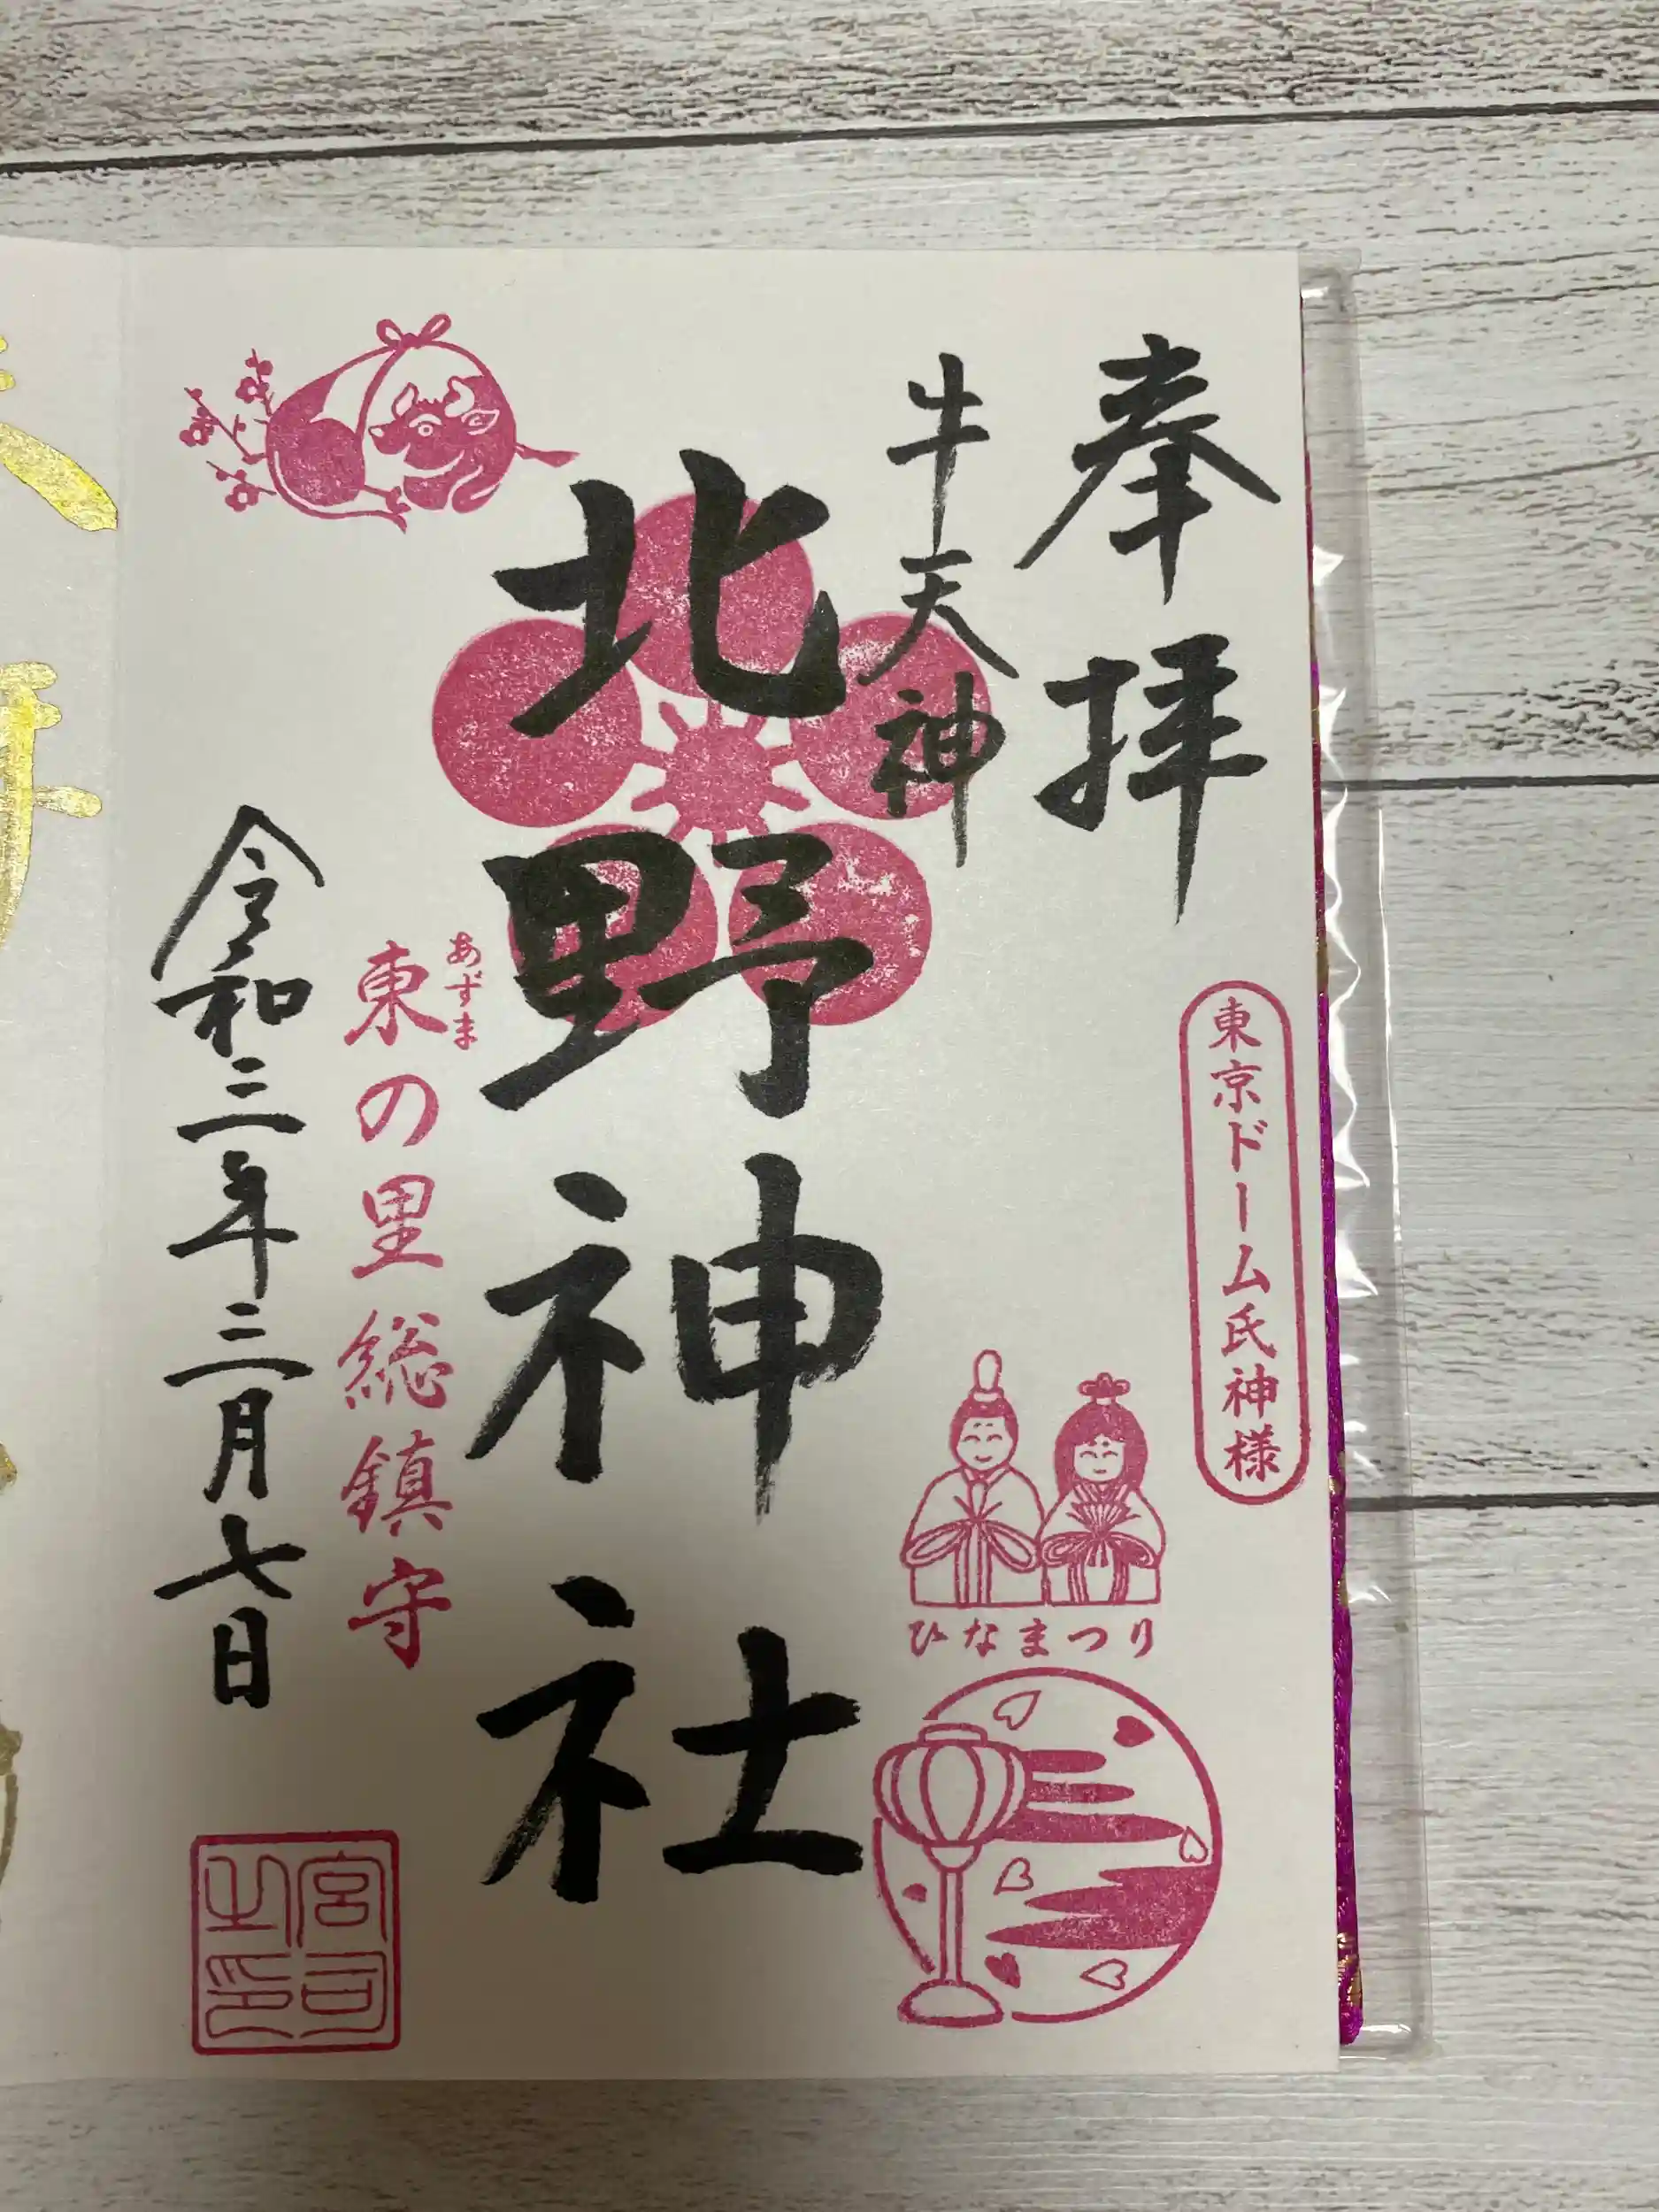 奉拝
東京ドーム氏神様
牛天神
ひなまつり
北野神社
あずま
東の里総鎮守
令和三年三月七日
宮司之印